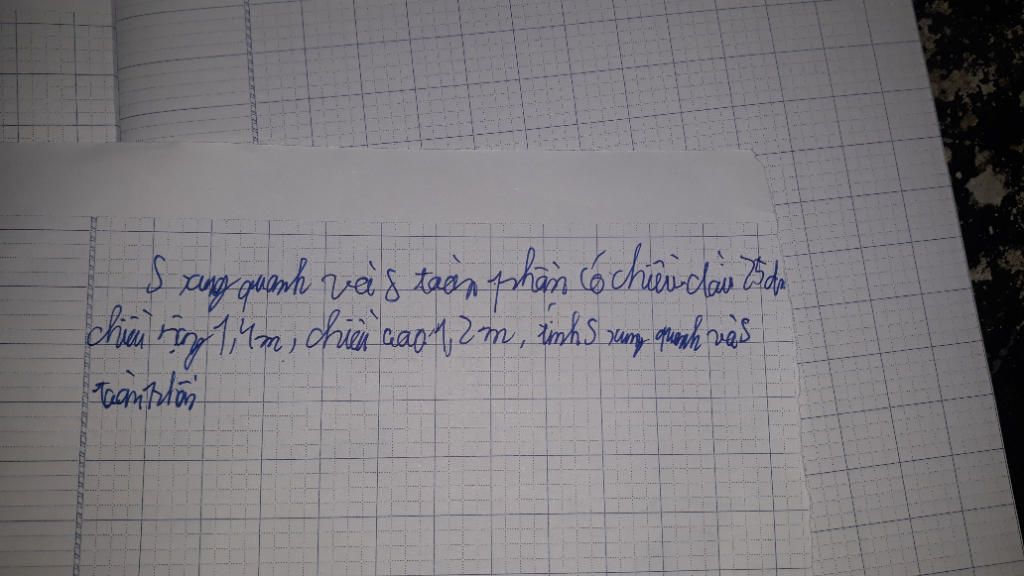 S xung quanh và S toàn phần có chiều dài 25dm
chiều rộng 1,4m, chiều cao 1,2m, tính S xung quanh và S
toàn phần